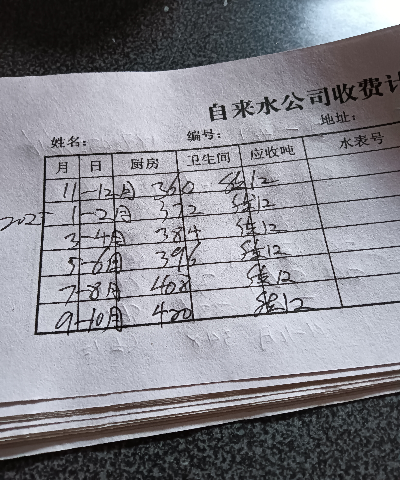 自来水公司收费计
姓名: 编号: 地址:
月 日 厨房 卫生间 应收吨 水表号
11-12月 360 12
2025 1-2月 372 12
3-4月 384 12
5-6月 396 12
7-8月 408 12
9-10月 420 12